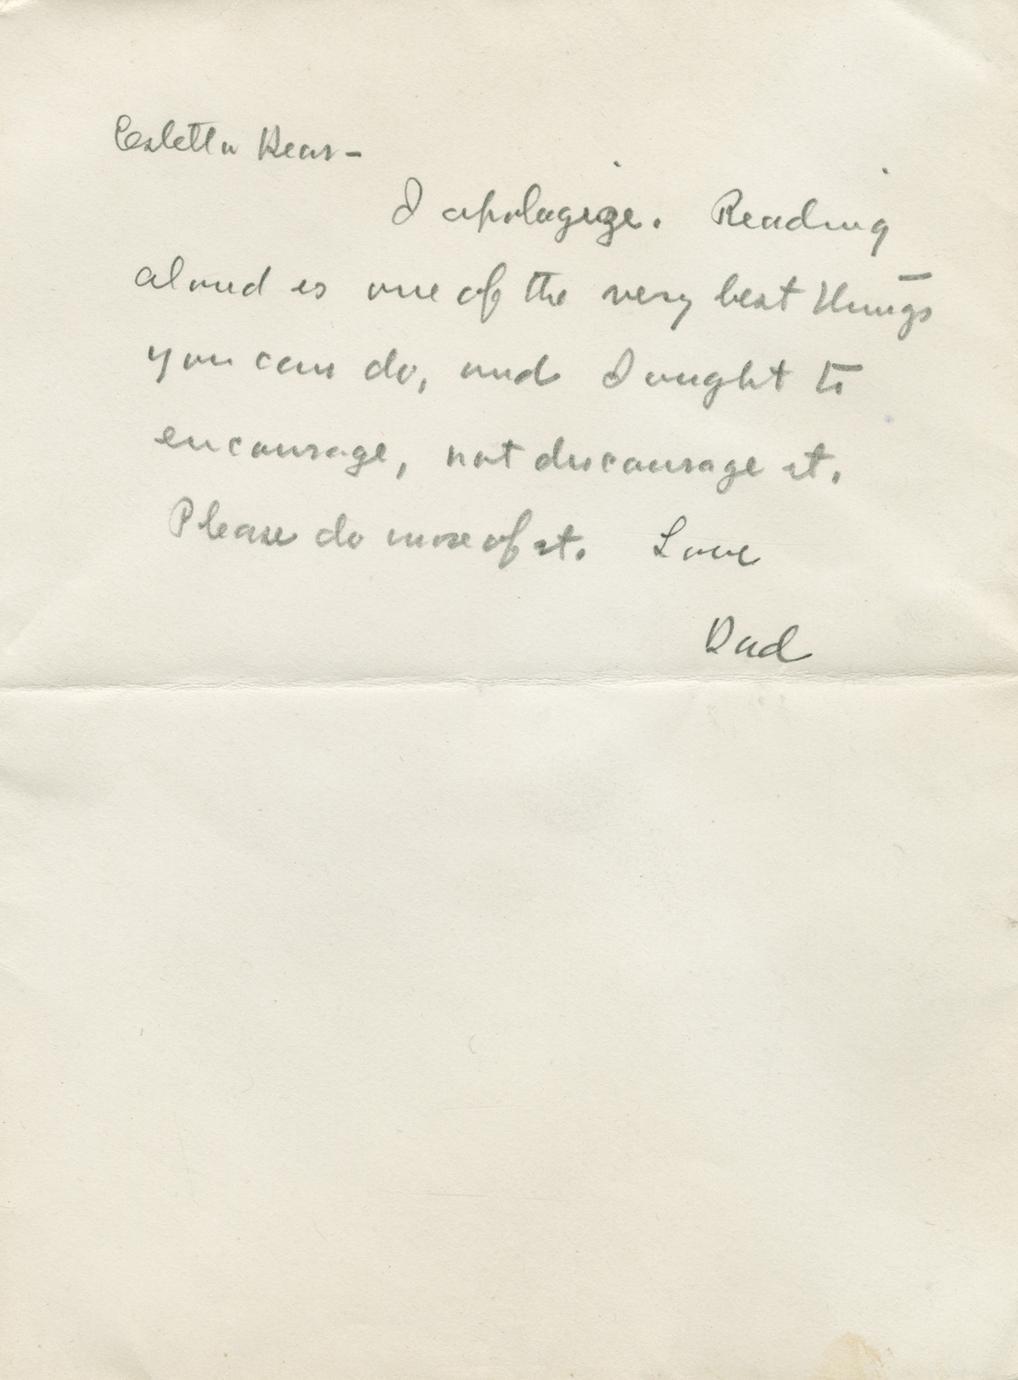 Esletta Dear –
I apologize. Reading
aloud is one of the very best things
you can do, and I ought to
encourage, not discourage it.
Please do more of it. Love
Dad